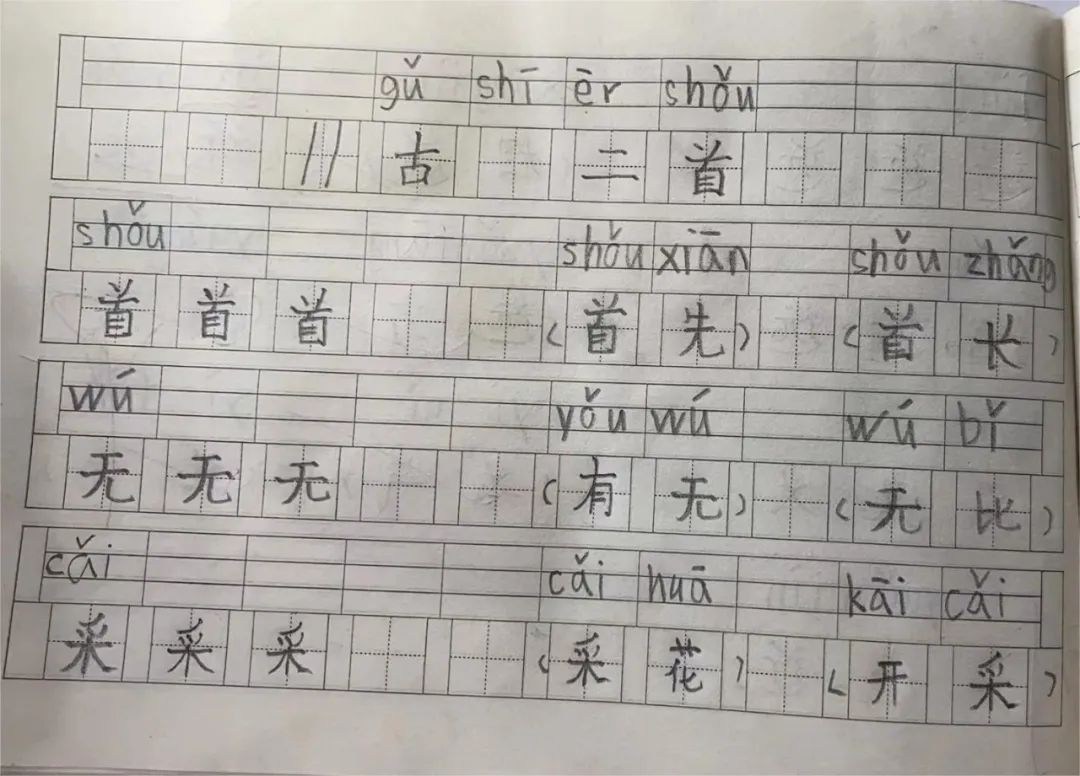 gǔ shī èr shǒu
11 古 二 首
shǒu shǒu xiān shǒu zhǎng
首 首 首 (首 先) (首 长)
wú yǒu wú wú bǐ
无 无 无 (有 无) (无 比)
cǎi cǎi huā kāi cǎi
采 采 采 (采 花) (开 采)